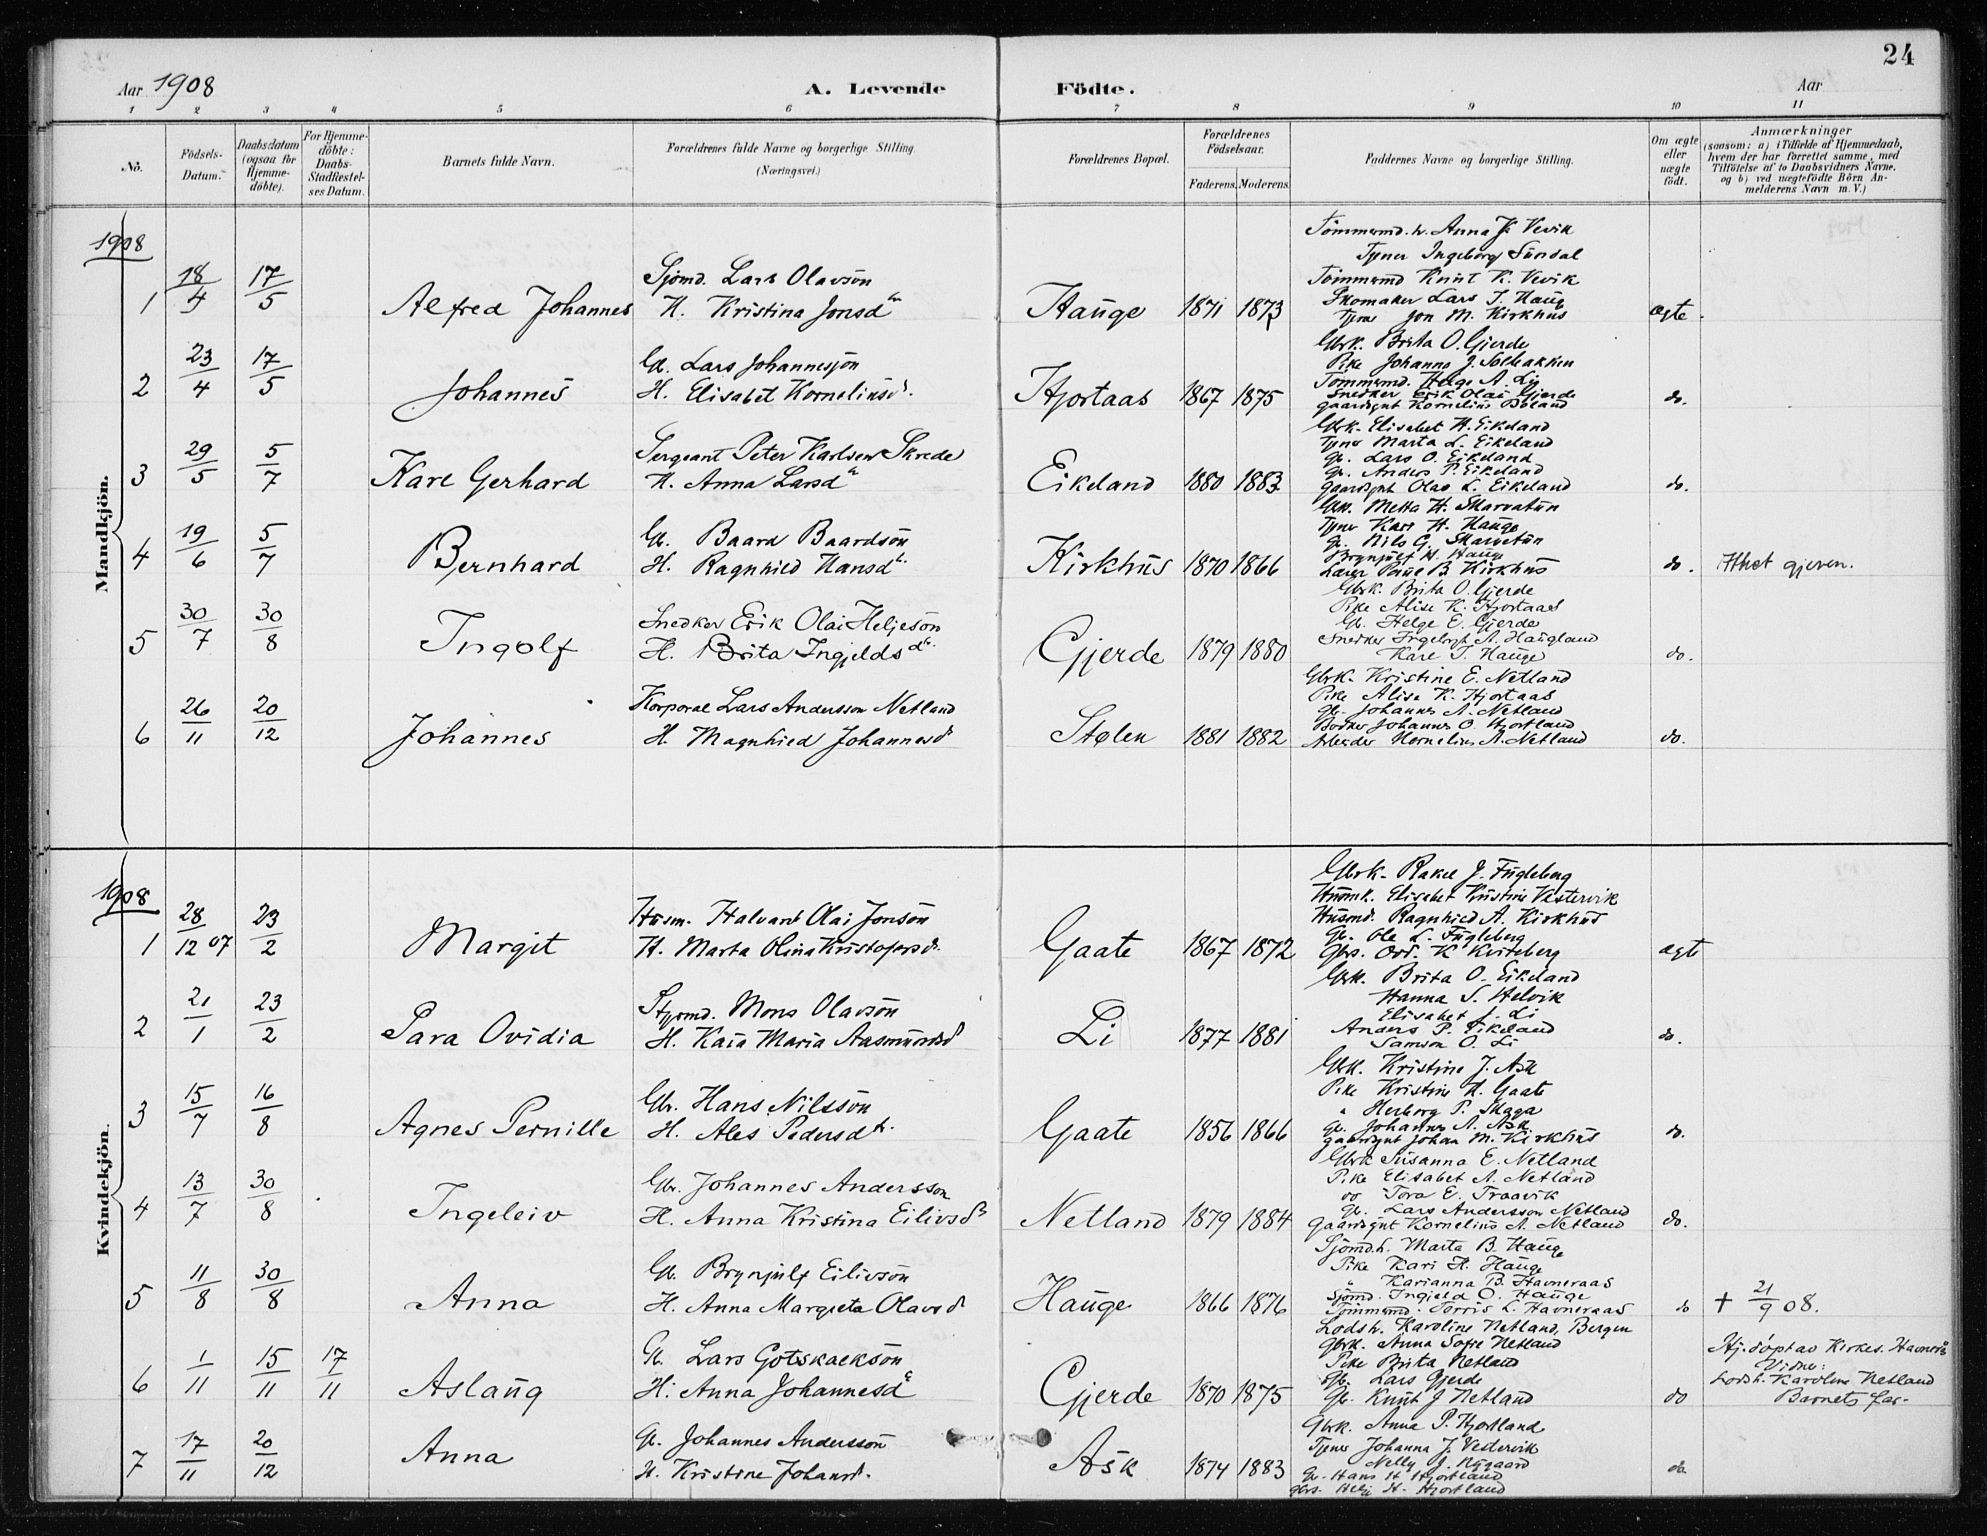 24
Aar 1908
A. Levende
Födte.
Aar
1 2 3 4 5 6 7 8 9 10 11
No.
Födsels-Datum.
Daabsdatum (ogsaa for Hjemme-döbte).
For Hjemme-döbte: Daabs-Stadfæstel-ses Datum.
Barnets fulde Navn.
Forældrenes fulde Navne og borgerlige Stilling. (Næringsvei.)
Forældrenes Bopæl.
Forældrenes Födselsaar.
Faderens. Moderens.
Faddernes Navne og borgerlige Stilling.
Om ægte eller uægte födt.
Anmærkninger
(saasom: a) i Tilfælde af Hjemmedaab,
hvem der har forrettet samme, med
Tilföielse af to Daabsvidners Navne.
og b) ved uægtefödte Börn An-
melderens Navn m. V.)
Mandkjön.
1908
1 18/4 17/5 Alfred Johannes
Sjømd. Lars Olavsön
H. Kristina Jonsdtr
Hauge 1871 1873
Tömmermd. h. Anna K. Vevik
Tjener Ingeborg Sundal
Tömmermd Knut K. Vevik
Skomaker Lars J. Hauge
Tjener Jon M. Kirkhus
ægte.
2 23/4 17/5 Johannes
Gb. Lars Johannesson
H. Elisabet Korneliusd.
Hjortaas 1867 1875
Gbrk. Brita O. Gjerde
Pike Johanna J. Solbakken
Tömmermd. Helge A. Li
Snedker Erik Olai Gjerde
gaardsgut Kornelius
do.
3 29/5 5/7 Kare Gerhard
Sergeant Peter Karlsen Skrede
H. Anna Larsdtr
Eikeland 1880 1883
Gbrk. Elisabet H. Eikeland
Tjener Marta L. Eikeland
Gb. Lars O. Eikeland
Gb. Anders P. Eikeland
gaardsgut Olav L. Eikeland
do.
4 19/6 5/7 Bernhard
Gb. Baard Baardsön
H. Ragnhild Hansdtr.
Kirkhus 1870 1866
Gbrk. Metta H. Skarvatun
Tjener Kari H. Hauge
Gb. Nils G. Skarvatun
Brynjulf H. Hauge
Lærer B. Kirkhus
do. Attest gjeven.
5 30/7 30/8 Ingolf
Snedker Erik Olai Heljesön
H. Brita Ingjeldsdtr.
Gjerde 1879 1880
Gbrk. Brita O. Gjerde
Pike Alise K. Hjortaas
Gb. Helge E. Gjerde
Snedker A. Haugland
Kare I. Hauge
do.
6 26/11 20/12 Johannes
Korporal Lars Andersson Netland
H. Magnhild Johannesd.
Stølen 1881 1882
Gbrk. Kristine E. Netland
Pike Alise K. Hjortaas
Gb. Johannes A. Netland
Bødker Johannes O. Hjortland
Arbeider Kornelius A. Netland
do.
Kvindekjön.
1908
1 28/12 07 23/2 Margit
Husm. Halvard Olai Jonsön
H. Marta Olina Kristofersd.
Gaate 1867 1872
Gbrk. Rakel J. Fugleberg
Husmk. Elisabet Kristine Vestervik
Husmd. Ragnhild A. Kirkhus
Gb. Ole L. Fugleberg
Gbrs. K Kviteberg
ægte
2 21/1 23/2 Para Ovidia
Styrmd. Mons Olavsön
H. Kaia Maria Aasmundsd.
Li 1877 1881
Gbrk. Brita O. Eikeland
Hanna S. Helvik
Elisabet J. Li
Anders P. Eikeland
Samson O. Li
do.
3 15/7 16/8 Agnes Pernille
Gb. Hans Nilssön
H. Ales Pedersdtr.
Gaate 1856 1866
Gbrk. Kristine J. Ask
Pike Kristine H. Gaate
" Herborg P. Skaga
Gb. Johannes A. Ask
gaardsgut Johan M. Kirkhus
do.
4 13/7 30/8 Ingeleiv
Gb. Johannes Andersson
H. Anna Kristina Eilivsd.
Netland 1879 1884
Gbrk Susanna E. Netland
Pike Elisabet A. Netland
do Tora E. Traavik
Gb. Lars Andersson Netland
Gaardsgut Kornelius A. Netland
do.
5 11/8 30/8 Anna
Gb. Brynjulf Eilivsön
H. Anna Margreta Olavsd
Hauge 1866 1876
Sjömd.h. Marta B. Hauge
Pike Kari H. Hauge
" Karianna B. Havneraas
Sjömd. Ingjeld O. Hauge
Tömmermd. Torris L. Havneraas
do + 21/9 08.
6 1/11 15/11 17/11 Aslaug
Gb. Lars Gotskalksön
H. Anna Johannesdtr
Gjerde 1870 1875
Lodsh. Karoline Netland, Bergen
Gbrk. Anna Sofie Netland
Pike Brita Netland
Gb. Lars Gjerde
Gb. Knut J Netland
do
Hj. döpt av Kirkes.
Vidne:
Lodsh. Karoline Netland
Barnets far.
7 17/11 20/12 Anna
Gb. Johannes Anderssön
H. Kristine Johansd.
Ask 1874 1883
Gbrk. Anna P. Hjortland
Tjener Johanna J. Vestervik
Nelly J. Nygaard
Gb. Hans H Hjortland
Gbrs. Helje H. Hjortland
do